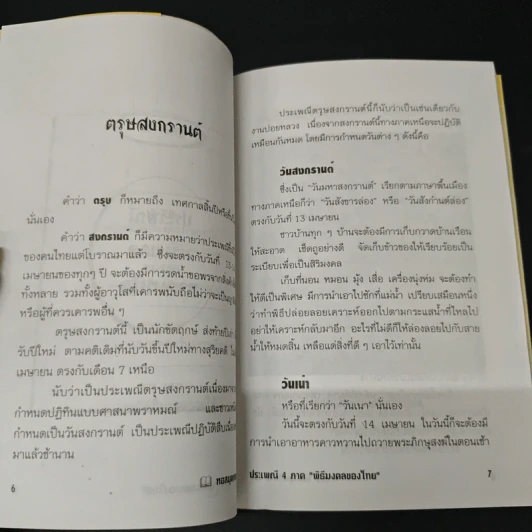 ตรุษสงกรานต์
คำว่า ตรุษ ก็หมายถึง เทศกาลสิ้นปีหรือ
นั่นเอง
คำว่า สงกรานต์ ก็มีความหมายว่าประเพณี
ของคนไทยแต่โบราณมาแล้ว ซึ่งจะตรงกับวันที่
เมษายนของทุกๆ ปี จะต้องมีการรดน้ำขอพรจาก
ทั้งหลาย รวมทั้งผู้อาวุโสที่เคารพนับถือไม่ว่าจะเป็น
หรือผู้ที่ควรเคารพอื่น ๆ
ตรุษสงกรานต์นี้ เป็นนักขัตฤกษ์ ส่งท้ายปี
รับปีใหม่ ตามคติเดิมที่นับวันขึ้นปีใหม่ทางสุริยคติ
เมษายน ตรงกับเดือน 7 เหนือ
นับว่าเป็นประเพณีตรุษสงกรานต์เนื่องมา
กำหนดปฏิทินแบบศาสนาพราหมณ์ และชาว
กำหนดเป็นวันสงกรานต์ เป็นประเพณีปฏิบัติสืบเนื่อง
มาแล้วช้านาน
6
ประเพณีตรุษสงกรานต์นี้ก็นับว่าเป็นเช่นเดียวกับ
งานปอยหลวง เนื่องจากสงกรานต์นี้ทางภาคเหนือจะปฏิบัติ
เหมือนกันหมด โดยมีการกำหนดวันต่าง ๆ ดังนี้คือ
วันสงกรานต์
ซึ่งเป็น "วันมหาสงกรานต์" เรียกตามภาษาพื้นเมือง
ทางภาคเหนือก็ว่า "วันสังขารล่อง" หรือ "วันสังก๋านต์ล่อง"
ตรงกับวันที่ 13 เมษายน
ชาวบ้านทุก ๆ บ้านจะต้องมีการเก็บกวาดบ้านเรือน
ให้สะอาด เช็ดถูอย่างดี จัดเก็บข้าวของให้เรียบร้อยเป็น
ระเบียบเพื่อเป็นสิริมงคล
เก็บที่นอน หมอน มุ้ง เสื่อ เครื่องนุ่งห่ม จะต้องทำ
ให้ดีเป็นพิเศษ มีการนำเอาไปซักที่แม่น้ำ เปรียบเสมือนหนึ่ง
ว่าทำพิธีปล่อยลอยเคราะห์ออกไปตามกระแสน้ำที่ไหลไป
อย่าให้เคราะห์กลับมาอีก อะไรที่ไม่ดีก็ให้ล่องลอยไปกับสาย
น้ำให้หมดสิ้น เหลือแต่สิ่งที่ดี ๆ เอาไว้เท่านั้น
วันเน่า
หรือที่เรียกว่า "วันเนา" นั่นเอง
วันนี้จะตรงกับวันที่ 14 เมษายน ในวันนี้ก็จะต้องมี
การนำเอาอาหารคาวหวานไปถวายพระภิกษุสงฆ์ในตอนเช้า
ประเพณี 4 ภาค "พิธีมงคลของไทย" 7